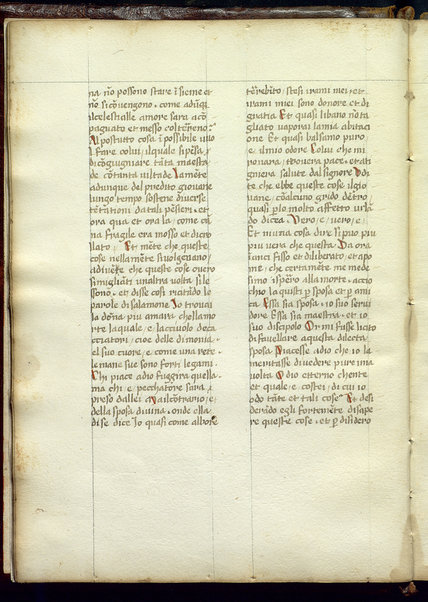 na nō possono stare īsieme et
nō sicōvengono. come adūq̄
alcelestiale amore sara acō
pagnato et messo colterreno?
Al postutto cosa īpossibile uuo
i fare colui, ilquale sipensa
dicōgiugniare tāta maesta
de cōtanta viltade La mēte
adunque del predito giovane
lungo tempo sostene diverse
tētationi da tali pēsieri, et
ora qua et ora la come ca
na fragile era mosso et dicro
llato, Et mētre che queste
cose nella mēte si volgevano
adivēne che queste cose overo
simiglāti unaltra volta si le
sono. et disse cosi ricitādo le
parole di salamone Io trovai
la dōna piu amara che llamo
rte la quale e lacciuolo de ca
cciatori, cioe delle dimonia.
el suo cuore, e come una rete
le mani sue sono forti legami.
Chi piace a dio fuggira quella.
ma chi e pecchatore sara
preso da llei Ma il cōtrario e
della sposa divina. onde ella
di se dice Io quasi come albore
terebīto stesi i rami miei, et
i rami miei sono donore et di
gratia Et quasi libano nō ta
gliato vaporai la mia abitaci
one Et quasi balsamo puro
e il mio odore Colui che mi
trovara, trovera pace. et ati
gniera salute dal signore Udi
te che ebbe queste cose il gio
vane, cō alcuno grido dētro,
quasi p̄ lo molto affetto urlā
do dicea. Vero, e, vero, e,
Et niuna cosa dire si puo piu
piu vera che questa Da ora
inanci fisso et diliberato, et apo
me, che certamēte me mede
simo isperō alla morte. accio
chio la quisti p̄ sposa et p̄ ami
ca Essa sia sposa. io suo servi
dore Essa sia maestra, et io
suo discipolo Or mi fusse licito
di favellare a questa dilecta
sposa Piacesse a dio che io la
meritasse di vedere pure una
volta O dio etterno chente
et quale e costei, di cui io
odo tāte et tali cose? Et desi
derādo egli fortemēte di sape
re queste cose. et p̄ disidero